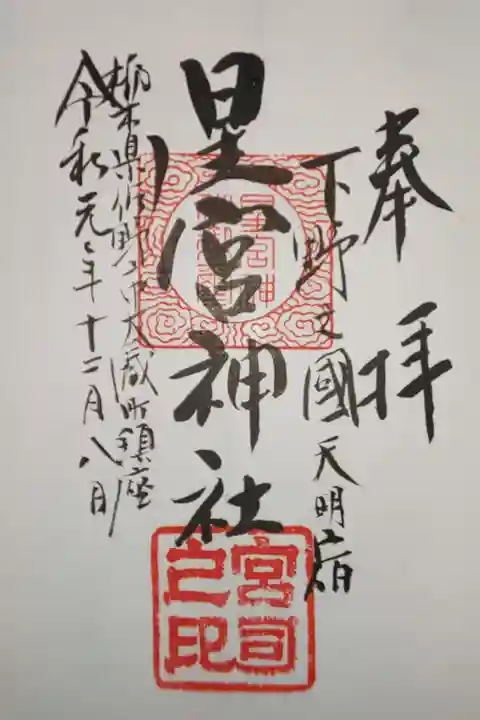 奉拝
下野之國天明宿
星宮神社
栃木県佐野市大蔵町鎮座
令和元年十二月八日
星宮神
宮司之印